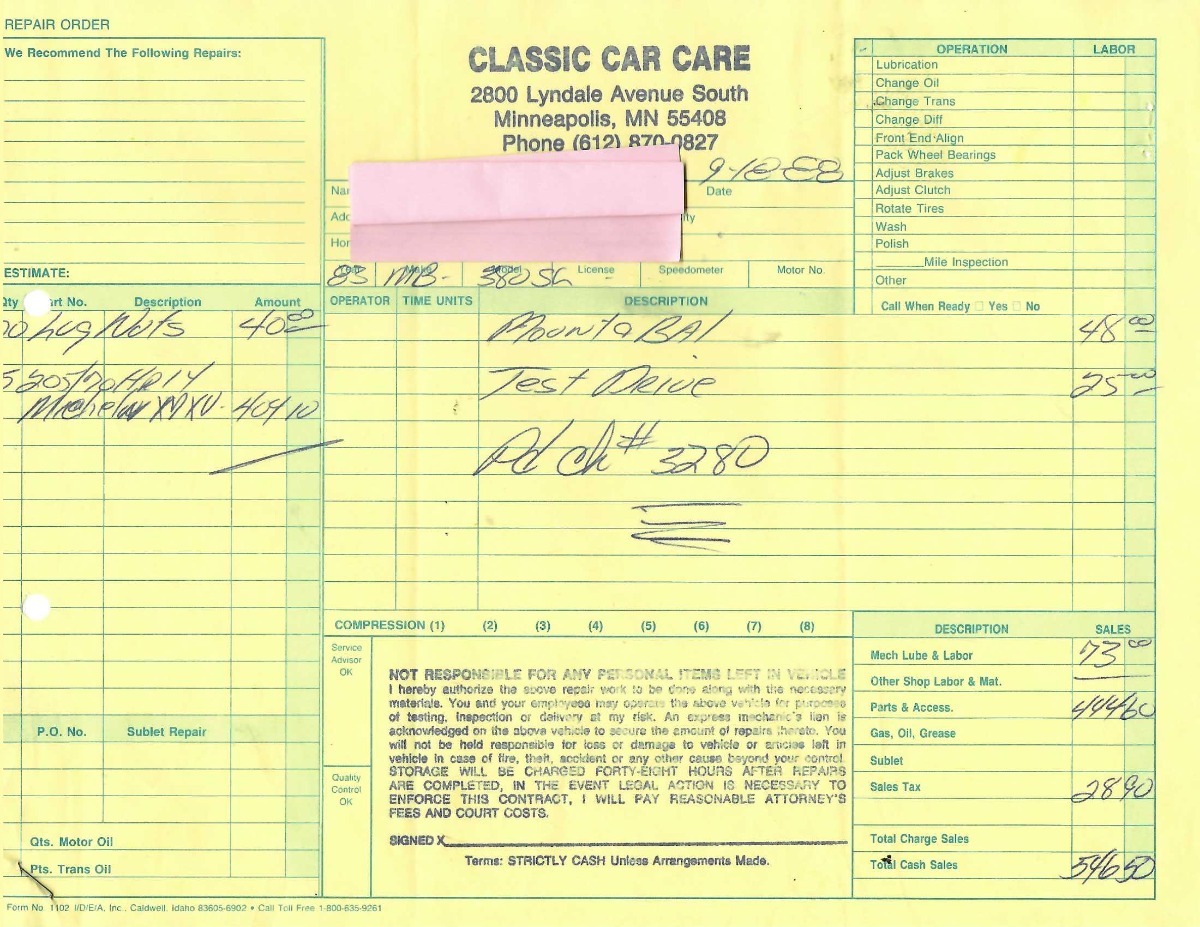 REPAIR ORDER
We Recommend The Following Repairs:
CLASSIC CAR CARE
2800 Lyndale Avenue South
Minneapolis, MN 55408
Phone (612) 870-0827
Date
Home
Year Make Model License Speedometer Motor No.
83 MB- 380SL
OPERATION LABOR
Lubrication
Change Oil
Change Trans
Change Diff
Front End Align
Pack Wheel Bearings
Adjust Brakes
Adjust Clutch
Rotate Tires
Wash
Polish
Mile Inspection
Other
Call When Ready Yes No
ESTIMATE:
Qty Part No. Description Amount
Lug Nuts 40.00
5 205/70HR14
Michelin MXV - 404 10
OPERATOR TIME UNITS DESCRIPTION
Mount & BAl 48 00
Test Drive 25.00
Pd ck # 3280
P.O. No. Sublet Repair
Qts. Motor Oil
Pts. Trans Oil
COMPRESSION (1) (2) (3) (4) (5) (6) (7) (8)
Service
Advisor
OK
Quality
Control
OK
NOT RESPONSIBLE FOR ANY PERSONAL ITEMS LEFT IN VEHICLE
I hereby authorize the above repair work to be done along with the necessary
materials. You and your employees may operate the above vehicle for purposes
of testing, inspection or delivery at my risk. An express mechanic's lien is
acknowledged on the above vehicle to secure the amount of repairs thereto. You
will not be held responsible for loss or damage to vehicle or articles left in
vehicle in case of fire, theft, accident or any other cause beyond your control.
STORAGE WILL BE CHARGED FORTY-EIGHT HOURS AFTER REPAIRS
ARE COMPLETED, IN THE EVENT LEGAL ACTION IS NECESSARY TO
ENFORCE THIS CONTRACT, I WILL PAY REASONABLE ATTORNEY'S
FEES AND COURT COSTS.
SIGNED X
Terms: STRICTLY CASH Unless Arrangements Made.
DESCRIPTION SALES
Mech Lube & Labor 73 00
Other Shop Labor & Mat.
Parts & Access. 444 60
Gas, Oil, Grease
Sublet
Sales Tax 28 90
Total Charge Sales
Total Cash Sales 546 50
Form No. 1102 I/D/E/A, Inc., Caldwell, Idaho 83605-6902 • Call Toll Free 1-800-635-9261